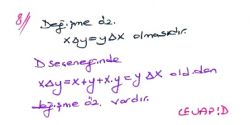 8// Değişme öz.
x∆y=y∆x olmasıdır.
D seçeneğinde
x∆y=x+y+x.y=y∆x old.dan
değişme öz. vardır.
CEVAP:D